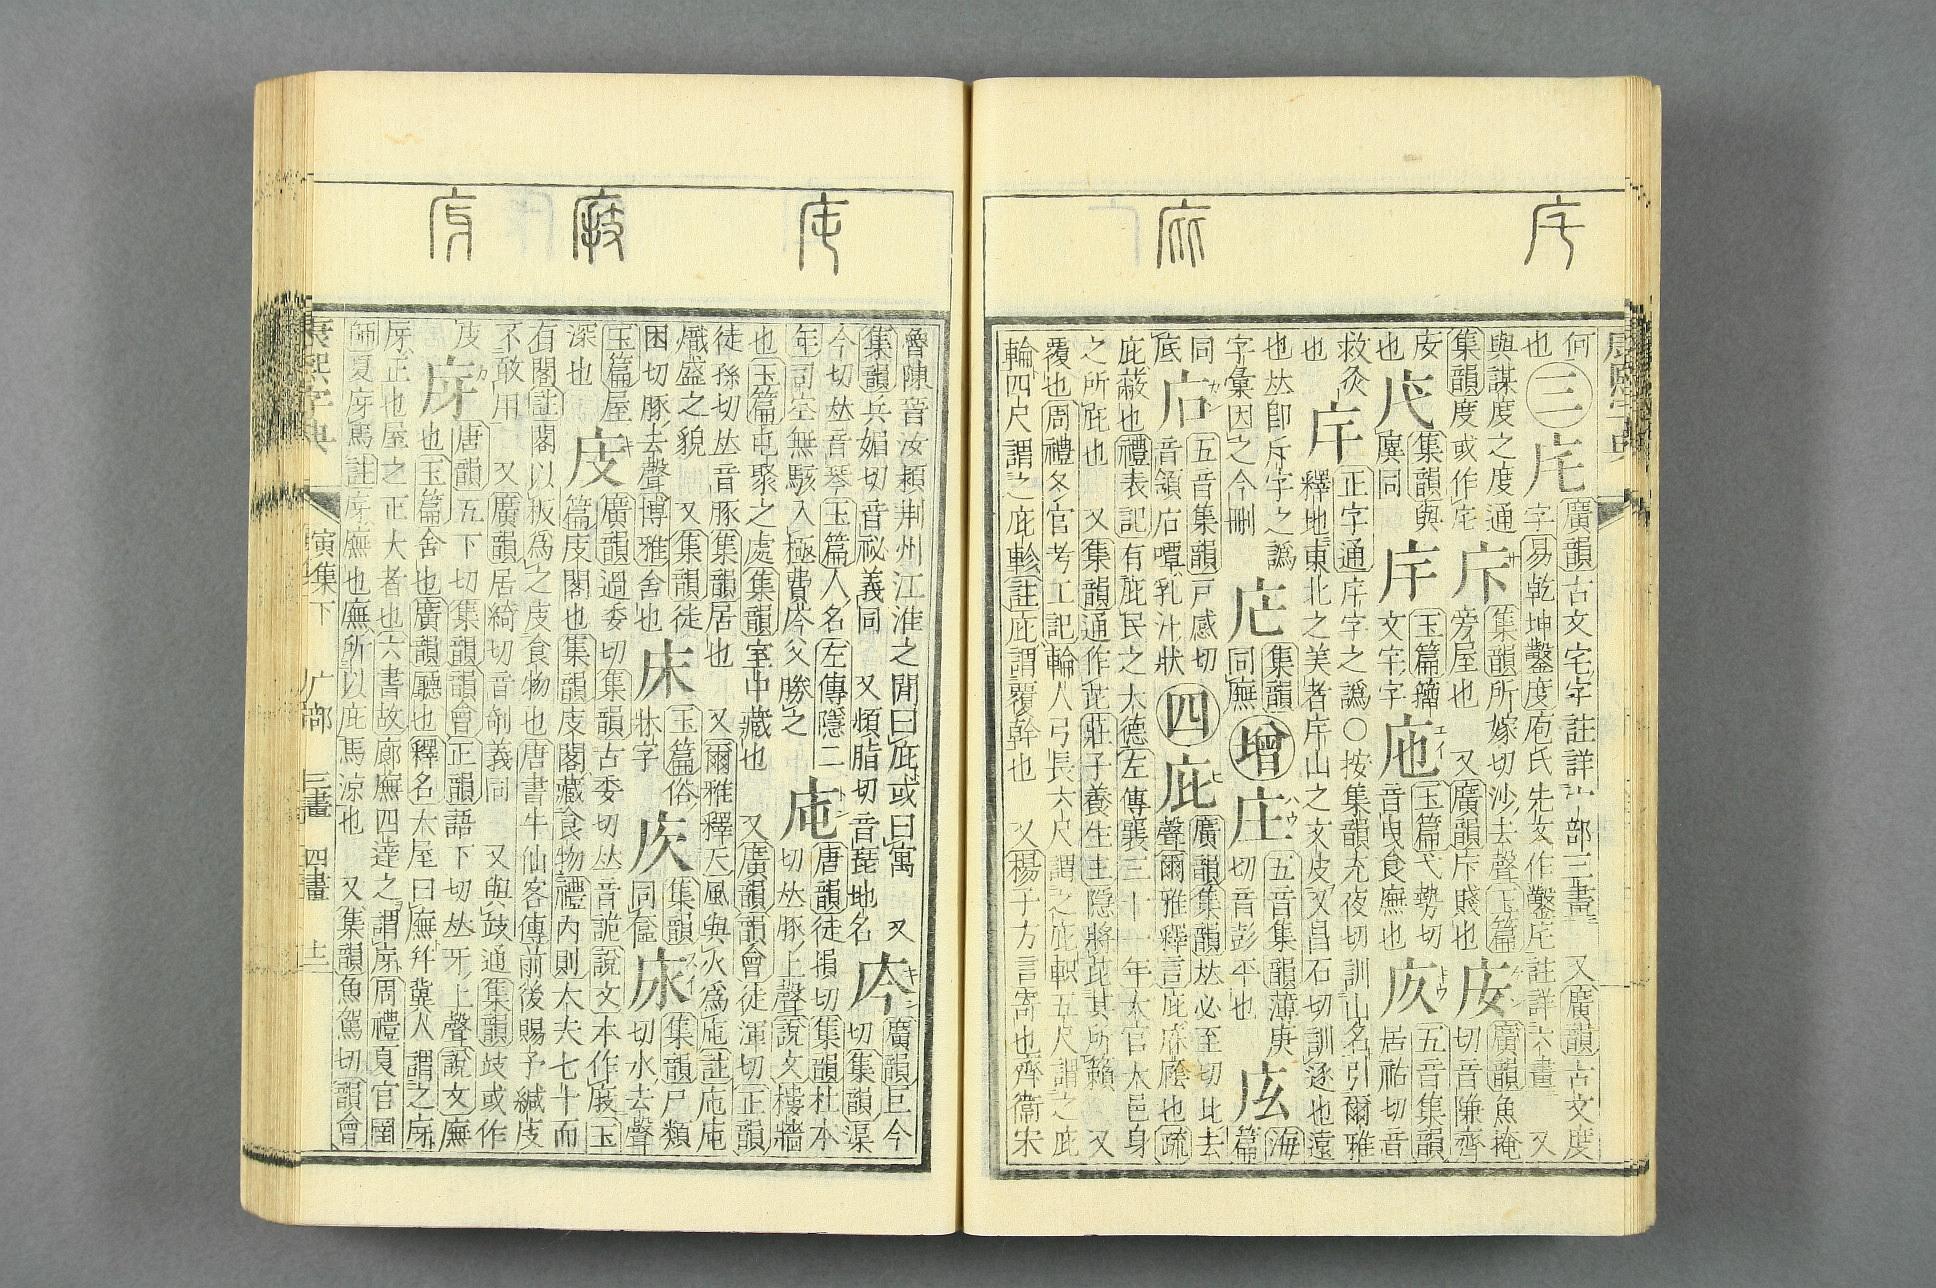 何
也
三
㡯
廣韻古文宅字註詳宀部三畫 又廣韻古文度
字易乾坤鑿度庖氏先文作鑿㡯註詳六畫 又
與謀度之度通
集韻度或作㡯
集韻所嫁切沙去聲玉篇
旁屋也 又廣韻斥賤也
廣韻魚掩
切音隒齊
也
集韻與
廙同
玉篇籀
文宇字
玉篇弋勢切
音曳食廡也
五音集韻
居祐切音
救灸
也
正字通岸字之譌○按集韻充夜切訓山名引爾雅
釋地東北之美者岸山之文皮又昌石切訓逐也遠
也𠀤卽斥字之譌
字彙因之今刪
集韻
同廡
增
庄
五音集韻薄庚
切音彭平也
海
篇
同
底
五音集韻戸感切
音頷 潭乳汁狀
四
庇
廣韻集韻𠀤必至切比去
聲爾雅釋言庇庥廕也疏
庇蔽也禮表記有庇民之大德左傳襄三十一年大官大邑身
之所庇也 又集韻通作芘莊子養生主隱將芘其所藾 又
覆也周禮冬官考工記輪人弓長六尺謂之庇軹五尺謂之庇
輪四尺謂之庇軫註庇謂覆幹也 又楊子方言寄也齊衞宋
魯陳晉汝潁荆州江淮之閒曰庇或曰寓 又
集韻兵媚切音祕義同 又頻脂切音琵地名
庈
廣韻巨今
切集韻渠
今切𠀤音琴玉篇人名左傳隱二
年司空無駭入極費庈父勝之
庉
唐韻徒損切集韻杜本
切𠀤豚上聲說文樓牆
也玉篇屯聚之處集韻室中藏也 又廣韻韻會徒渾切正韻
徒孫切𠀤音豚集韻居也 又爾雅釋天風與火爲庉註庉庉
熾盛之貌 又集韻徒
困切豚去聲博雅舍也
床
玉篇俗
牀字
集韻
同
集韻尸類
切水去聲
玉篇屋
深也
庋
廣韻過委切集韻古委切𠀤音詭說文本作庪玉
篇庋閣也集韻庋閣藏食物禮內則大夫七十而
有閣註閣以板爲之庋食物也唐書牛仙客傳前後賜予緘庋
不敢用 又廣韻居綺切音剞義同 又與攱通集韻攱或作
庋
庌
唐韻五下切集韻韻會正韻語下切𠀤牙上聲說文廡
也玉篇舍也廣韻廳也釋名大屋曰廡幷冀人謂之庌
庌正也屋之正大者也六書故廊廡四達之謂庌周禮夏官圉
師夏庌馬註庌廡也廡所以庇馬涼也 又集韻魚駕切韻會
康熙字典
寅集下 广部 三畫 四畫 士